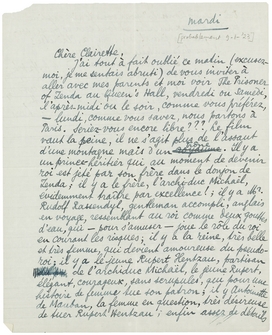 mardi
Chère Clairette,
J'ai tout à fait oublié ce matin (excusez-
moi, je me sentais abruti) de vous inviter à
aller avec mes parents et moi voir The Prisoner
of Zenda au Queen's Hall, vendredi ou Samedi,
l'après-midi ou le soir, comme vous préférez,
— lundi, comme vous savez, nous partons à
Paris. Seriez-vous encore libre??? Le film
vaut la peine, il ne s'agit plus de l'assaut
d'une montagne mais d'un. Il y a
un prince-héritier qui au moment de devenir
roi est jeté par son frère dans le donjon de
Zenda; il y a le frère, l'archiduc Michaël,
évidemment traître par excellence!; il y a Mr.
Rudolf Rassendyll, gentleman accompli, anglais
en voyage, ressemblant au roi comme deux gouttes
d'eau, qui — pour s'amuser — joue le rôle du roi
en courant les risques; il y a la reine, très belle
et très digne, qui devient amoureuse du pseudo-
roi; il y a le jeune Rupert Hentzau, partisan
de l'archiduc Michaël, le jeune Rupert,
élégant, courageux, sans scrupules, qui pour une
histoire de femme tue son patron; il y Antoinette
de Mauban, la femme en question, très désireuse
de tuer Rupert Hentzau; enfin assez de détails